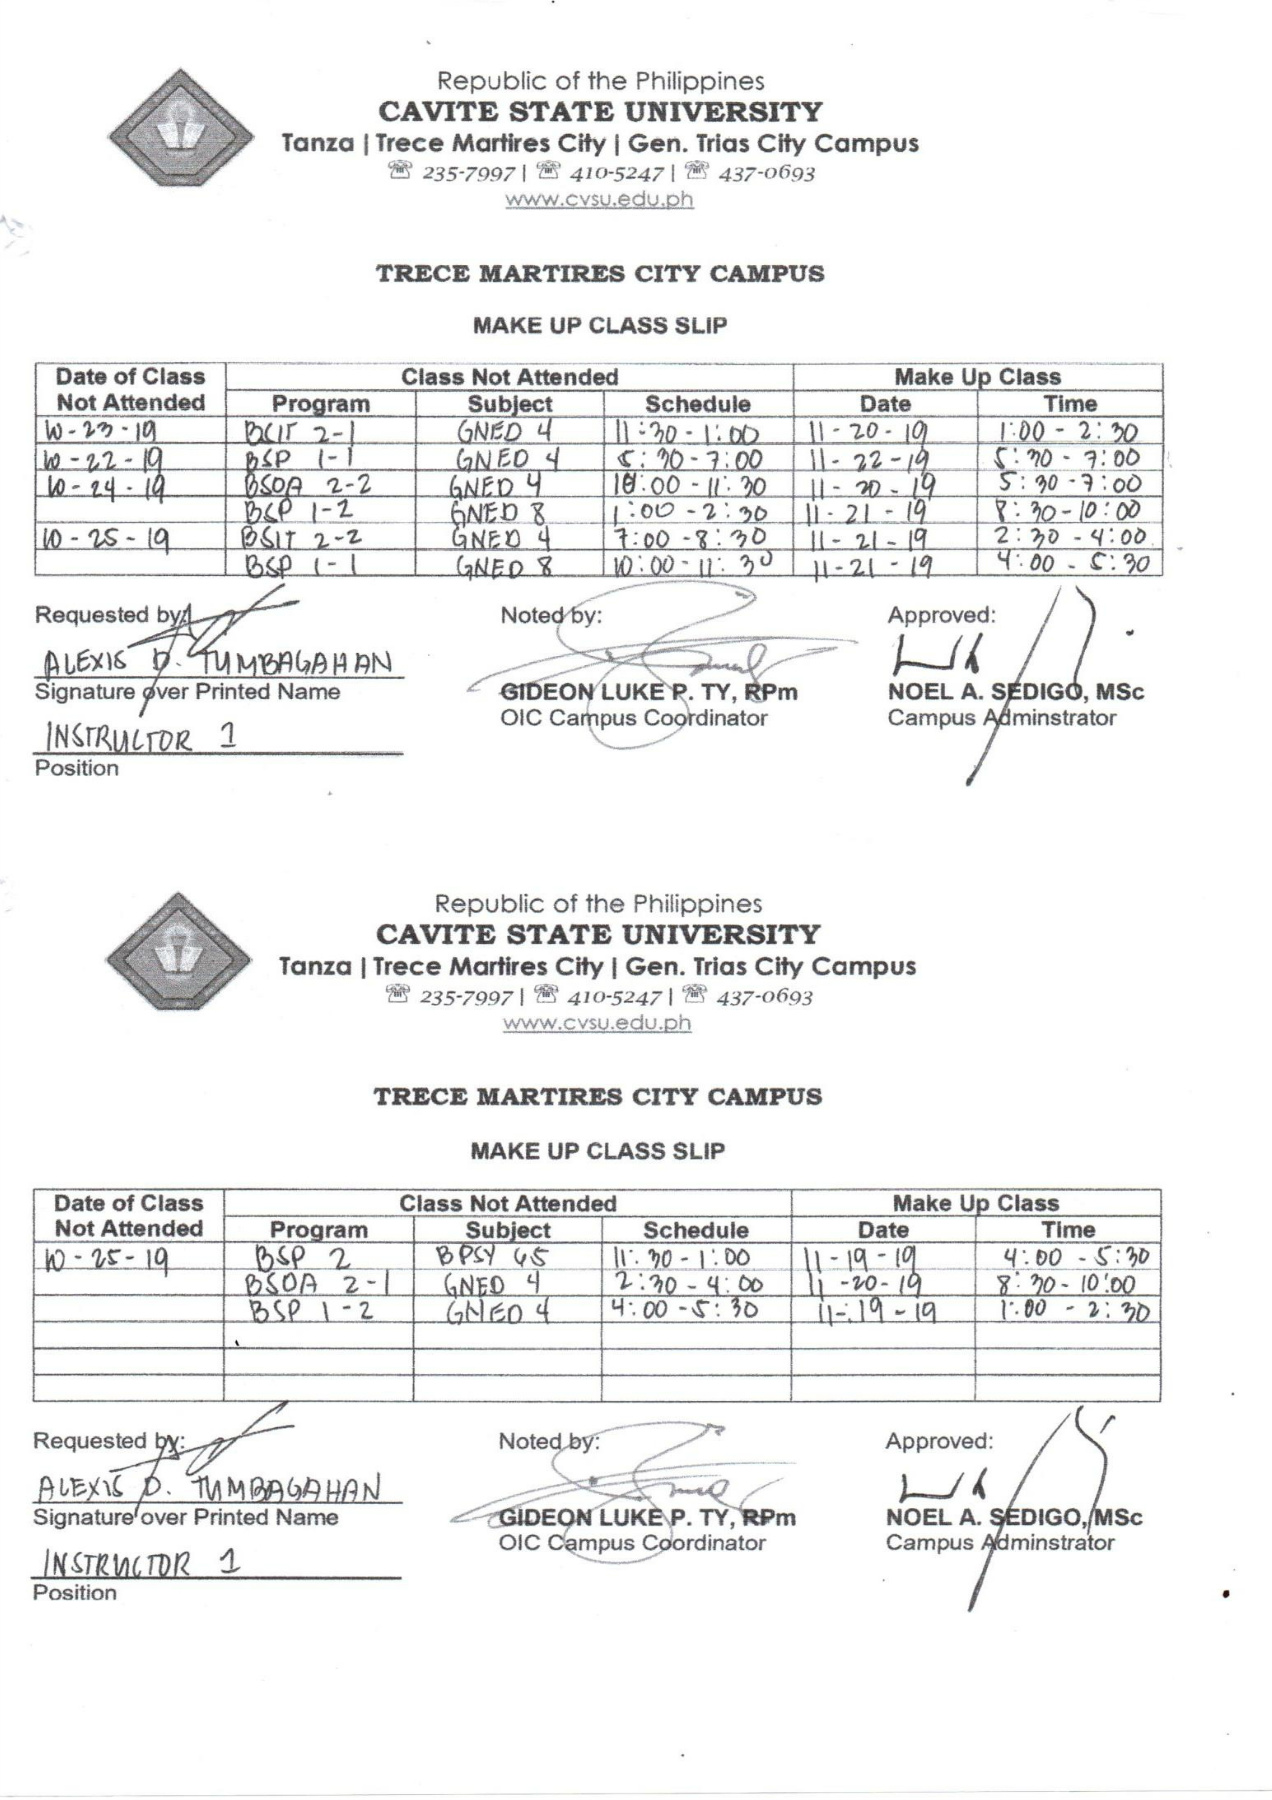 Republic of the Philippines
CAVITE STATE UNIVERSITY
Tanza | Trece Martires City | Gen. Trias City Campus
☏ 235-7997 | ☏ 410-5247 | ☏ 437-0693
www.cvsu.edu.ph
TRECE MARTIRES CITY CAMPUS
MAKE UP CLASS SLIP
Date of Class Not Attended | Class Not Attended | Make Up Class
Program | Subject | Schedule | Date | Time
10-23-19 | BSIT 2-1 | GNED 4 | 11:30-1:00 | 11-20-19 | 1:00-2:30
10-22-19 | BSP 1-1 | GNED 4 | 5:30-7:00 | 11-22-19 | 5:30-7:00
10-24-19 | BSOA 2-2 | GNED 4 | 10:00-11:30 | 11-20-19 | 5:30-7:00
BSP 1-2 | GNED 8 | 1:00-2:30 | 11-21-19 | 8:30-10:00
10-25-19 | BSIT 2-2 | GNED 4 | 7:00-8:30 | 11-21-19 | 2:30-4:00
BSP 1-1 | GNED 8 | 10:00-11:30 | 11-21-19 | 4:00-5:30
Requested by: Noted by: Approved:
ALEXIS D. TUMBAGAHAN GIDEON LUKE P. TY, RPm NOEL A. SEDIGO, MSc
Signature over Printed Name OIC Campus Coordinator Campus Adminstrator
INSTRUCTOR 1
Position
Republic of the Philippines
CAVITE STATE UNIVERSITY
Tanza | Trece Martires City | Gen. Trias City Campus
☏ 235-7997 | ☏ 410-5247 | ☏ 437-0693
www.cvsu.edu.ph
TRECE MARTIRES CITY CAMPUS
MAKE UP CLASS SLIP
Date of Class Not Attended | Class Not Attended | Make Up Class
Program | Subject | Schedule | Date | Time
10-25-19 | BSP 2 | BPSY 65 | 11:30-1:00 | 11-19-19 | 4:00-5:30
BSOA 2-1 | GNED 4 | 2:30-4:00 | 11-20-19 | 8:30-10:00
BSP 1-2 | GNED 4 | 4:00-5:30 | 11-19-19 | 1:00-2:30
Requested by: Noted by: Approved:
ALEXIS D. TUMBAGAHAN GIDEON LUKE P. TY, RPm NOEL A. SEDIGO, MSc
Signature over Printed Name OIC Campus Coordinator Campus Adminstrator
INSTRUCTOR 1
Position